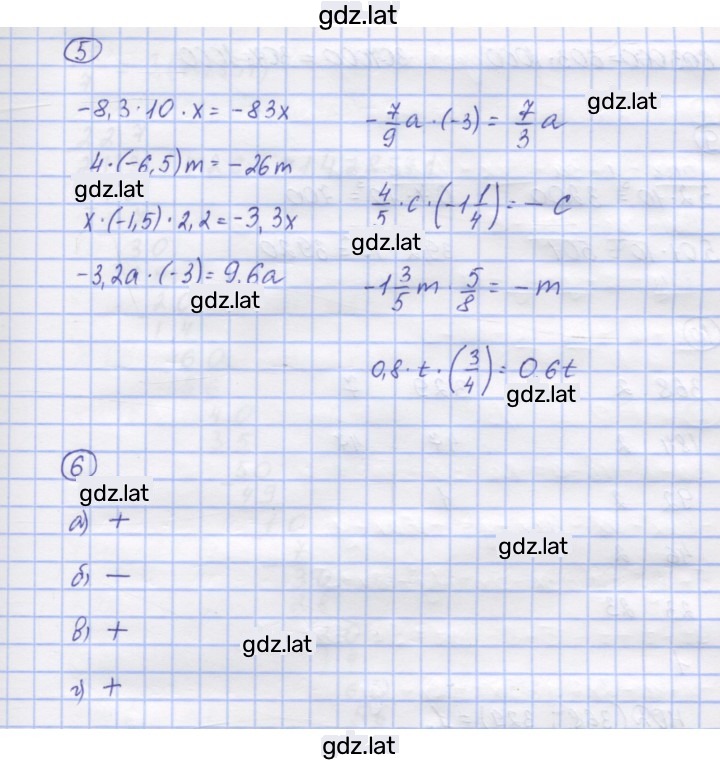 gdz.lat
5
-8,3·10·x = -83x
-7/9 a·(-3) = 7/3 a
gdz.lat
4·(-6,5)m = -26m
gdz.lat
4/5·c·(-1 1/4) = -c
x·(-1,5)·2,2 = -3,3x
gdz.lat
-3,2a·(-3) = 9.6a
gdz.lat
-1 3/5 m·5/8 = -m
0,8·t·(3/4) = 0.6t
gdz.lat
6
gdz.lat
а) +
gdz.lat
б) —
в) +
gdz.lat
г) +
gdz.lat